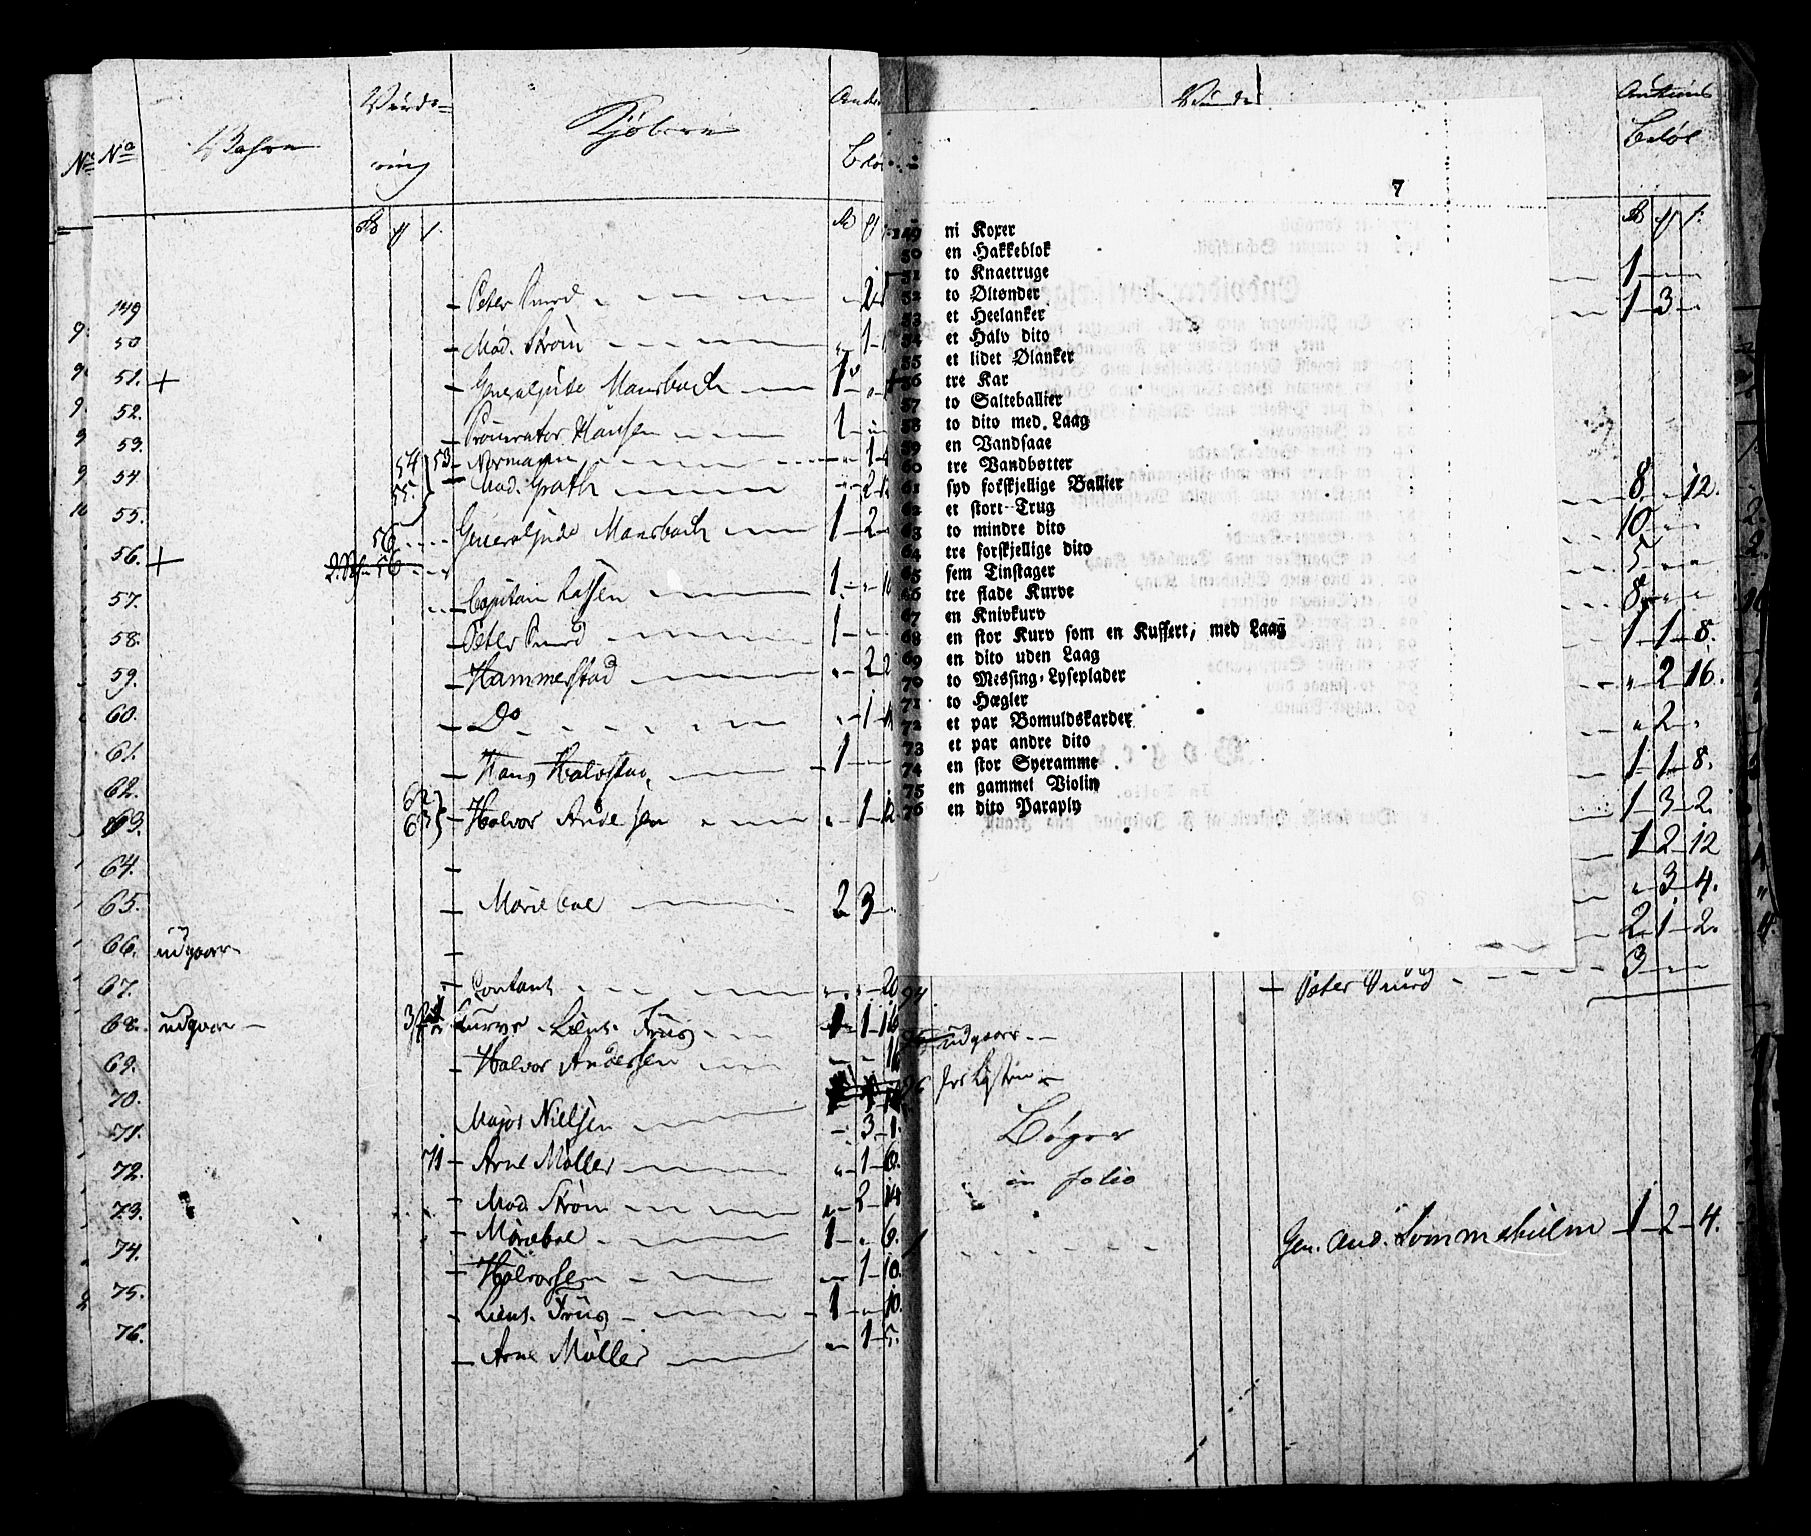 No Wahre Vurde= ring Kjøbere
149 Peter Smed 2
50 Mad. Strøm 1
51. + Generalinde Mansbach 1
52. Procurator Hansen 1
53. 53 Normann 1
54 54 55. Mad. Groth 2
55. 56 Generalinde Mansbach 1 2
56. +
57. Capitain Lassen 1
58. Peter Smed 1
59. Hammerstad 2
60. Do 1
61. Hans Halvstad 1
62. 62
63. 63 Halvor Andersen 1 12
64.
65. Marieboe 2 3
66. udgaar
67. Contant 20
68. udgaar Kurve Lieut. Friis 1 1 16
69. Halvor Andersen 16
70. Major Nielsen 3 1
71. 71 Arne Møller 1 6.
72. Mad. Strøm 2 14
73. Marieboe 1 6.
74. Halvorsen 1 10.
75. Lieut. Friis 1 10.
76. Arne Møller 1 5.
7
149 ni Koxer
50 en Hakkeblok
51 to Knaetruge
52 to Øltønder
53 et Heelanker
54 et Halv dito
55 et lidet Ølanker
56 tre Kar
57 to Salteballier
58 to dito med Laag
59 en Vandsaae
60 tre Vandbøtter
61 syv forskjellige Ballier
62 et stort Trug
63 to mindre dito
64 tre forskjellige dito
65 fem Tinstager
66 tre flade Kurve
67 en Knivkurv
68 en stor Kurv som en Kuffert, med Laag
69 en dito uden Laag
70 to Messing-Lyseplader
71 to Hægler
72 et par Bomuldskarder
73 et par andre dito
74 en stor Syeramme
75 en gammel Violin
76 en dito Paraply
Auctions Beløb
1
1 3
8 12.
10
5
8
1 1 8.
2 16.
2
1 1 8.
1 3 2.
1 2 12
3 4.
2 1 2.
94 Peter Smed 3
95 udgaar
96
Bøger
in folio
1 Gen. Aud. Sommerhielm 1 2 4.